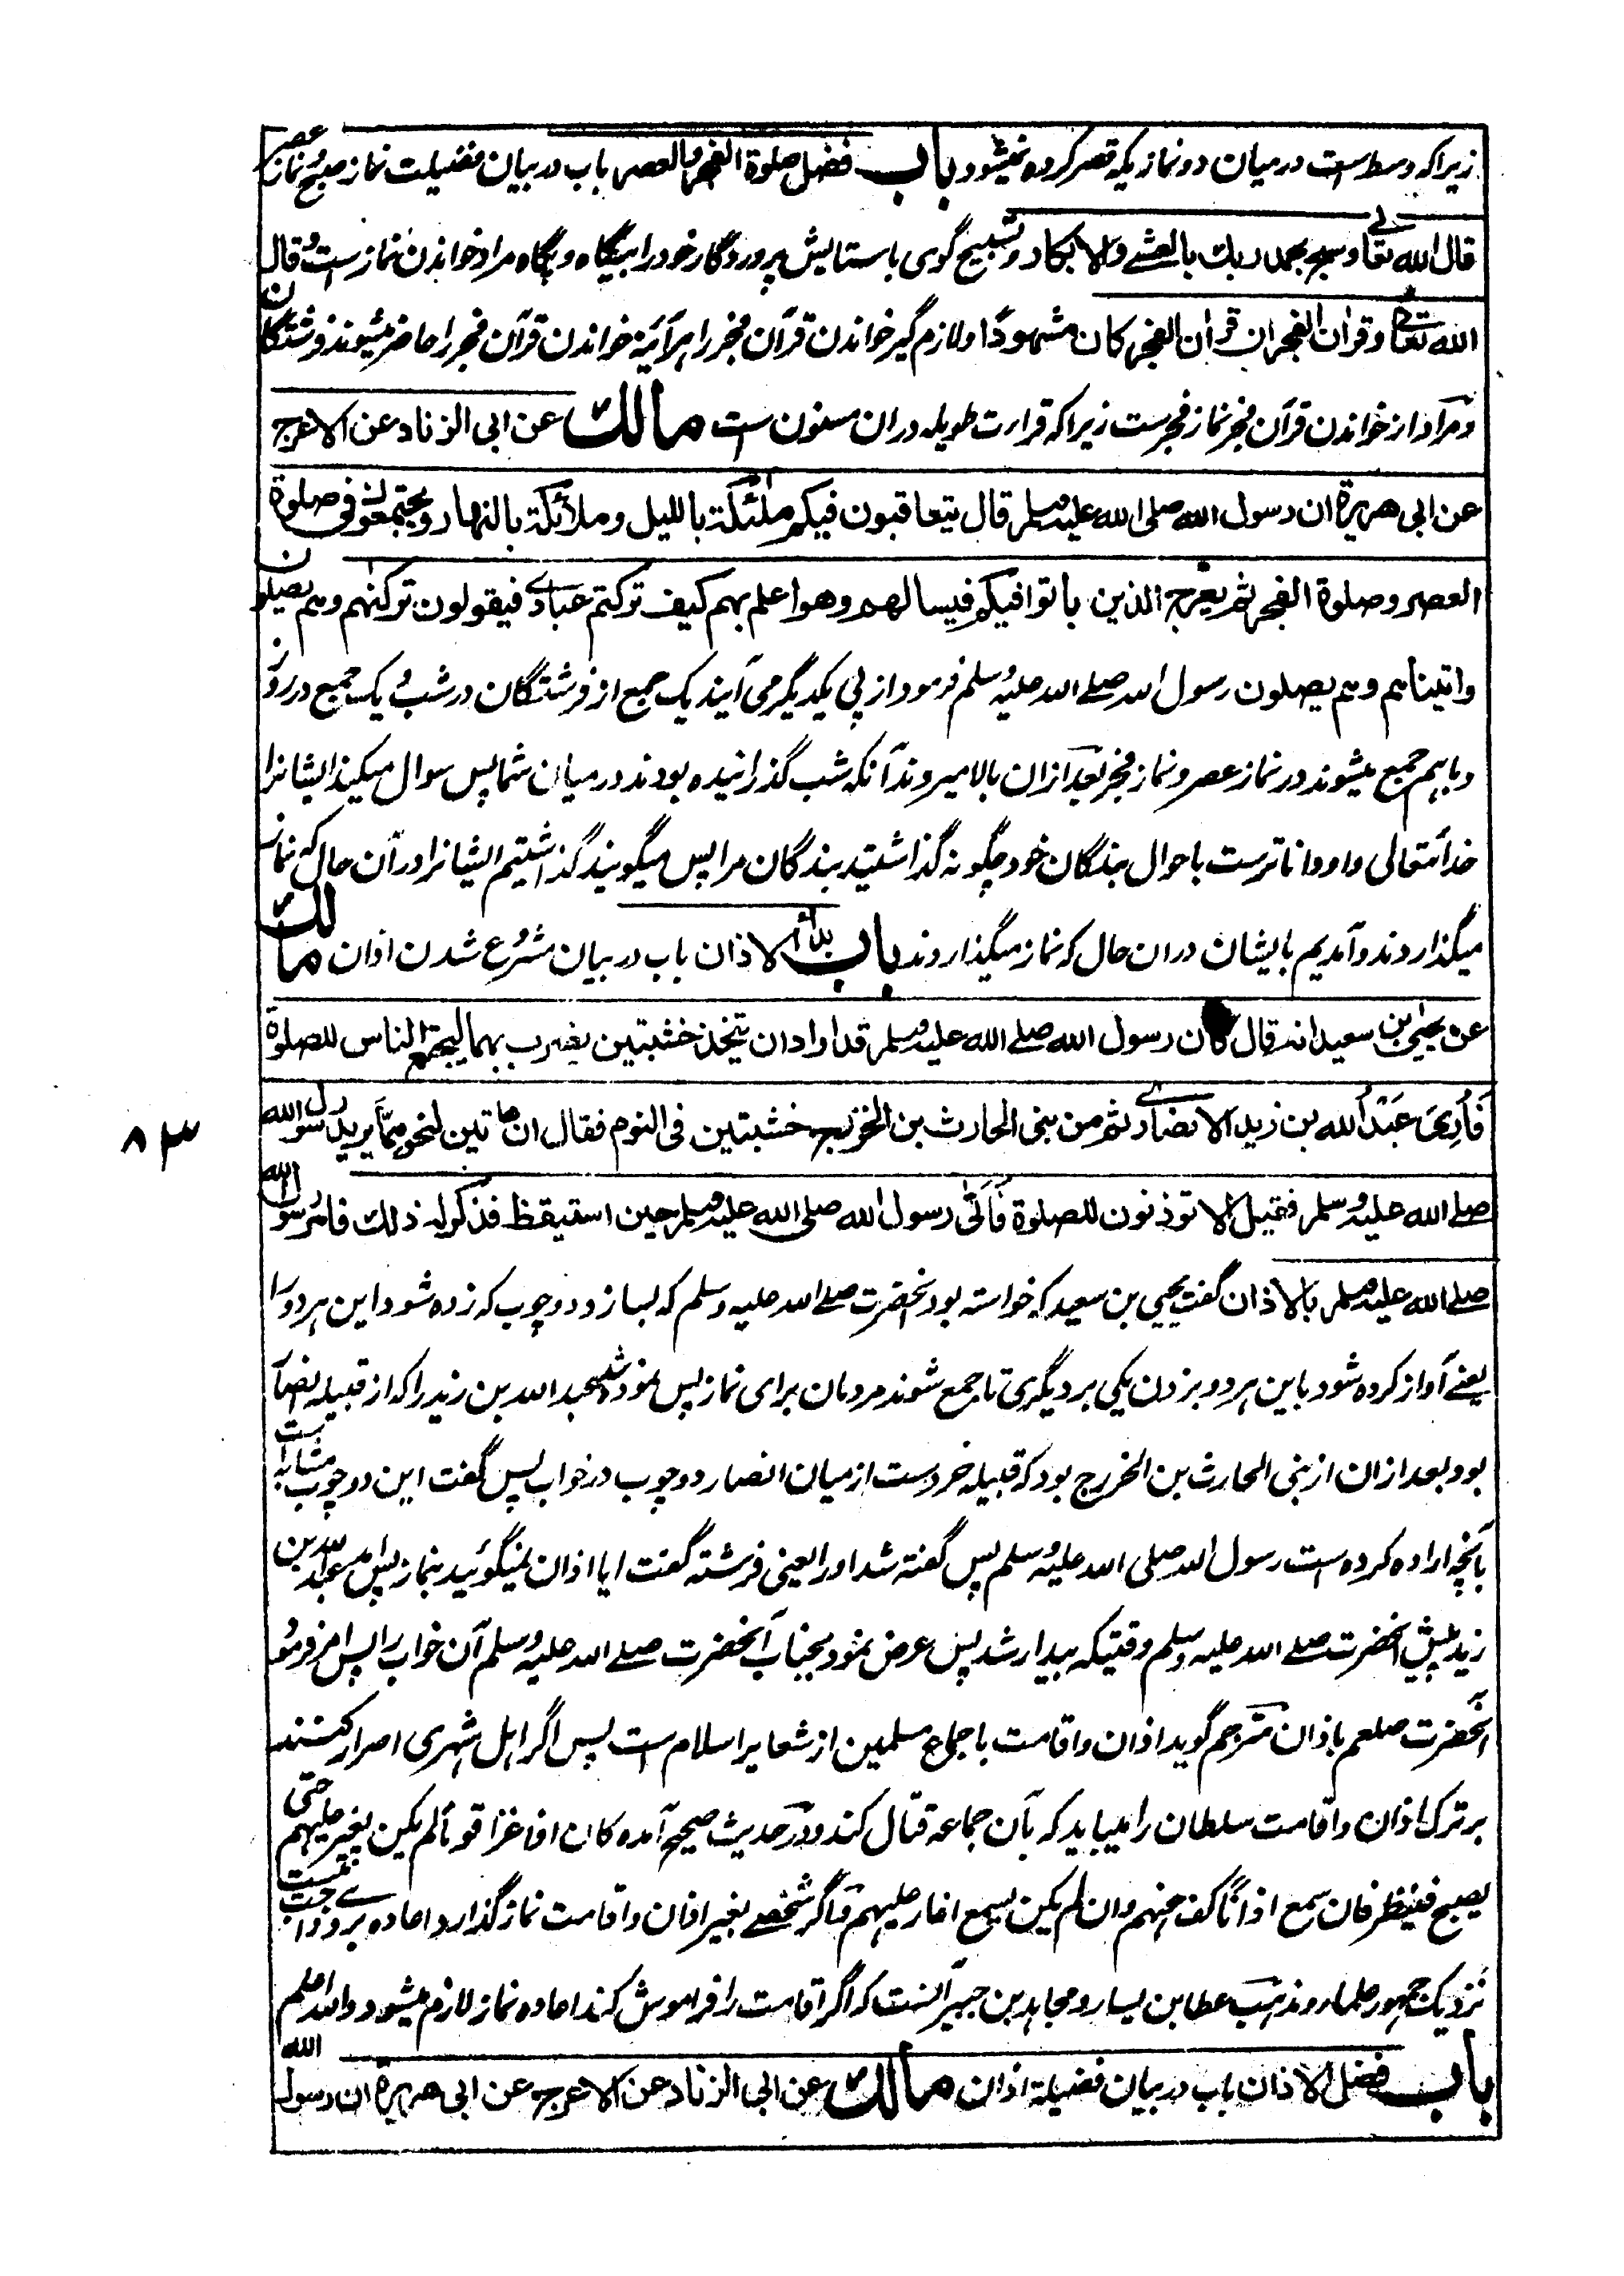 زیراکه وسط است درمیان دو نماز یکه قصر کرده نمیشود باب فضل صلوة الفجر والعصر باب در بیان فضیلت نماز صبح و نماز عصر
قال الله تعالی وسبح بحمد ربك بالعشی والابکار و تسبیح گوی باستایش پروردگار خود را بیگاه و پگاه مراد خواندن نماز است و قال
الله تعالی وقران الفجر ان قران الفجر کان مشهودًا و لازم گیر خواندن قرآن فجر را هرآئینه خواندن قرآن فجر را حاضر میشوند فرشتگان
و مراد از خواندن قرآن فجر نماز فجرست زیراکه قراءت طویله دران مسنون است مالك عن ابی الزناد عن الاعرج
عن ابی هریرة ان رسول الله صلی الله علیه وسلم قال یتعاقبون فیکم ملئکة باللیل وملائکة بالنهار ویجتمعون فی صلوة
العصر وصلوة الفجر ثم یعرج الذین باتوا فیکم فیسالهم وهو اعلم بهم کیف ترکتم عبادی فیقولون ترکنهم وهم یصلون
واتیناهم وهم یصلون رسول الله صلے الله علیه وسلم فرمود از پی یکدیگر می آیند یک جمع از فرشتگان در شب و یک جمع در روز
و باهم جمع میشوند در نماز عصر و نماز فجر بعد ازان بالا میروند آنانکه شب گذرانیده بودند درمیان شما پس سوال میکند ایشانرا
خدایتعالی و او داناترست باحوال بندگان خود چگونه گذاشتید بندگان مرا پس میگویند گذاشتیم ایشانرا در آن حال که نماز
میگذاردند و آمدیم بایشان دران حال که نماز میگذاردند باب بداء الاذان باب در بیان مشروع شدن اذان مالك
عن یحیی بن سعید انه قال کان رسول الله صلے الله علیه وسلم قد اراد ان یتخذ خشبتین یضرب بهما لیجتمع الناس للصلوة
فَاُرِیَ عَبْدُ الله بن زید الانصاری ثم من بنی الحارث بن الخزرج خشبتین فی النوم فقال ان هاتین لنحو مما یرید رسول الله
صلے الله علیه وسلم فقیل الا توذنون للصلوة فَاَتَی رسول الله صلی الله علیه وسلم حین استیقظ فذکر له ذلك فامر رسول الله
صلے الله علیه وسلم بالاذان گفت یحیی بن سعید که خواسته بود آنحضرت صلے الله علیه وسلم که بسازد دو چوب که زده شود این هر دو را
یعنے آواز کرده شود باین هر دو بزدن یکی بر دیگری تا جمع شوند مردمان برای نماز پس نموده شد عبدالله بن زید را که از قبیله انصار
بود بعد ازان از بنی الحارث بن الخزرج بود که قبیله خردست از میان انصار دو چوب در خواب پس گفت این دو چوب مشابه است
بآنچه اراده کرده است رسول الله صلی الله علیه وسلم پس گفته شد او را یعنی فرشته گفت ایا اذان نمیگوئید بنماز پس آمد عبدالله بن
زید پیش آنحضرت صلے الله علیه وسلم وقتیکه بیدار شد پس عرض نمود بجناب آنحضرت صلے الله علیه وسلم آن خواب را پس امر فرمود
آنحضرت صلعم باذان مترجم گوید اذان و اقامت باجماع مسلمین از شعایر اسلام است پس اگر اهل شهری اصرار کنند
بر ترک اذان و اقامت سلطان را میباید که بآن جماعه قتال کند و در حدیث صحیح آمده کان اذا غزا قوماً لم یکن یغیر علیهم حتی
یصبح فینظر فان سمع اذاناً کف عنهم وان لم یکن یسمع اغار علیهم و اگر شخصے بغیر اذان و اقامت نماز گذارد اعاده بر وے واجب نیست
نزدیک جمهور علماء و مذهب عطا بن یسار و مجاهد بن جبیر آنست که اگر اقامت را فراموش کند اعاده نماز لازم میشود والله اعلم
باب فضل الاذان باب در بیان فضیلة اذان مالك عن ابی الزناد عن الاعرج عن ابی هریرة ان رسول الله
۸۳